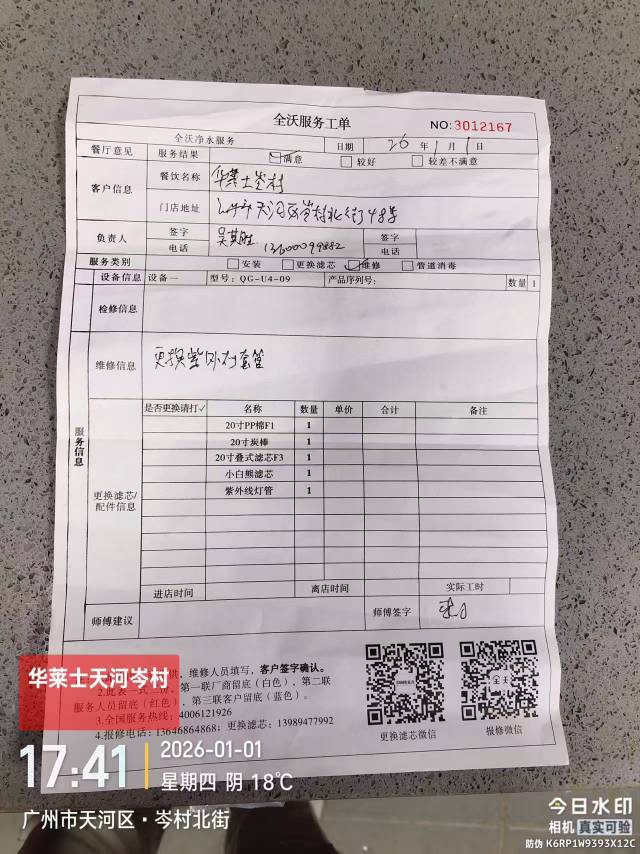 全沃服务工单
NO:3012167
全沃净水服务 日期 26年1月1日
餐厅意见 服务结果 满意 较好 较差不满意
客户信息 餐饮名称 华莱士岑村
门店地址 天河区岑村北街48号
负责人 签字 签字
电话 13600099882 电话
服务类别 安装 更换滤芯 维修 管道消毒
设备信息 设备一 型号:QG-U4-09 产品序列号: 数量 1
检修信息
维修信息 更换紫外灯套管
服务信息
更换滤芯/配件信息
是否更换请打√ 名称 数量 单价 合计 备注
20寸PP棉F1 1
20寸炭棒 1
20寸叠式滤芯F3 1
小白熊滤芯 1
紫外线灯管 1
进店时间 离店时间 实际工时
师傅建议 师傅签字
供,维修人员填写,客户签字确认。
2.此表一式三份,第一联厂商留底(白色),第二联
服务人员留底(红色),第三联客户留底(蓝色)。
3.全国服务热线:4006121926
4.报修电话:13646864868;更换滤芯:13989477992
更换滤芯微信 报修微信
华莱士天河岑村
17:41 2026-01-01
星期四 阴 18℃
广州市天河区·岑村北街
今日水印
相机 真实可验
防伪 K6RP1W9393X12C